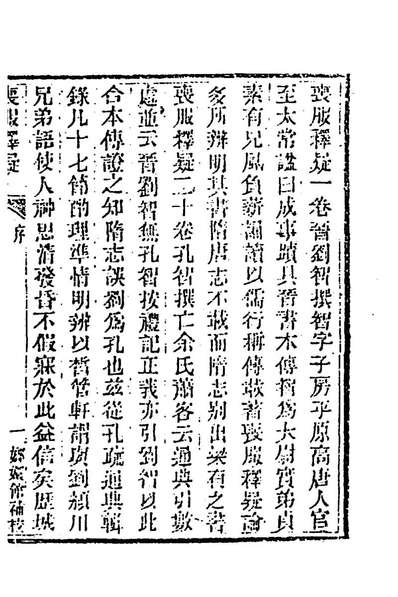 喪服釋疑一卷晉劉智撰智字子房平原高唐人官
至太常諡曰成事蹟具晉書本傳智為大尉寔弟貞
素有兄風負薪誦讀以儒行稱傳載著喪服釋疑論
多所辨明其書隋唐志不載而隋志別出梁有之書
喪服釋疑二十卷孔智撰亡余氏蕭客云通典引數
處並云晉劉智無孔智按禮記正義亦引劉智以此
合本傳證之知隋志誤劉為孔也茲從孔疏通典輯
錄凡十七節酌理準情明辨以晳管軒謂與劉潁川
兄弟語使人神思清發昏不假寐於此益信矣歷城
喪服釋疑 序 一 嫏嬛館補校